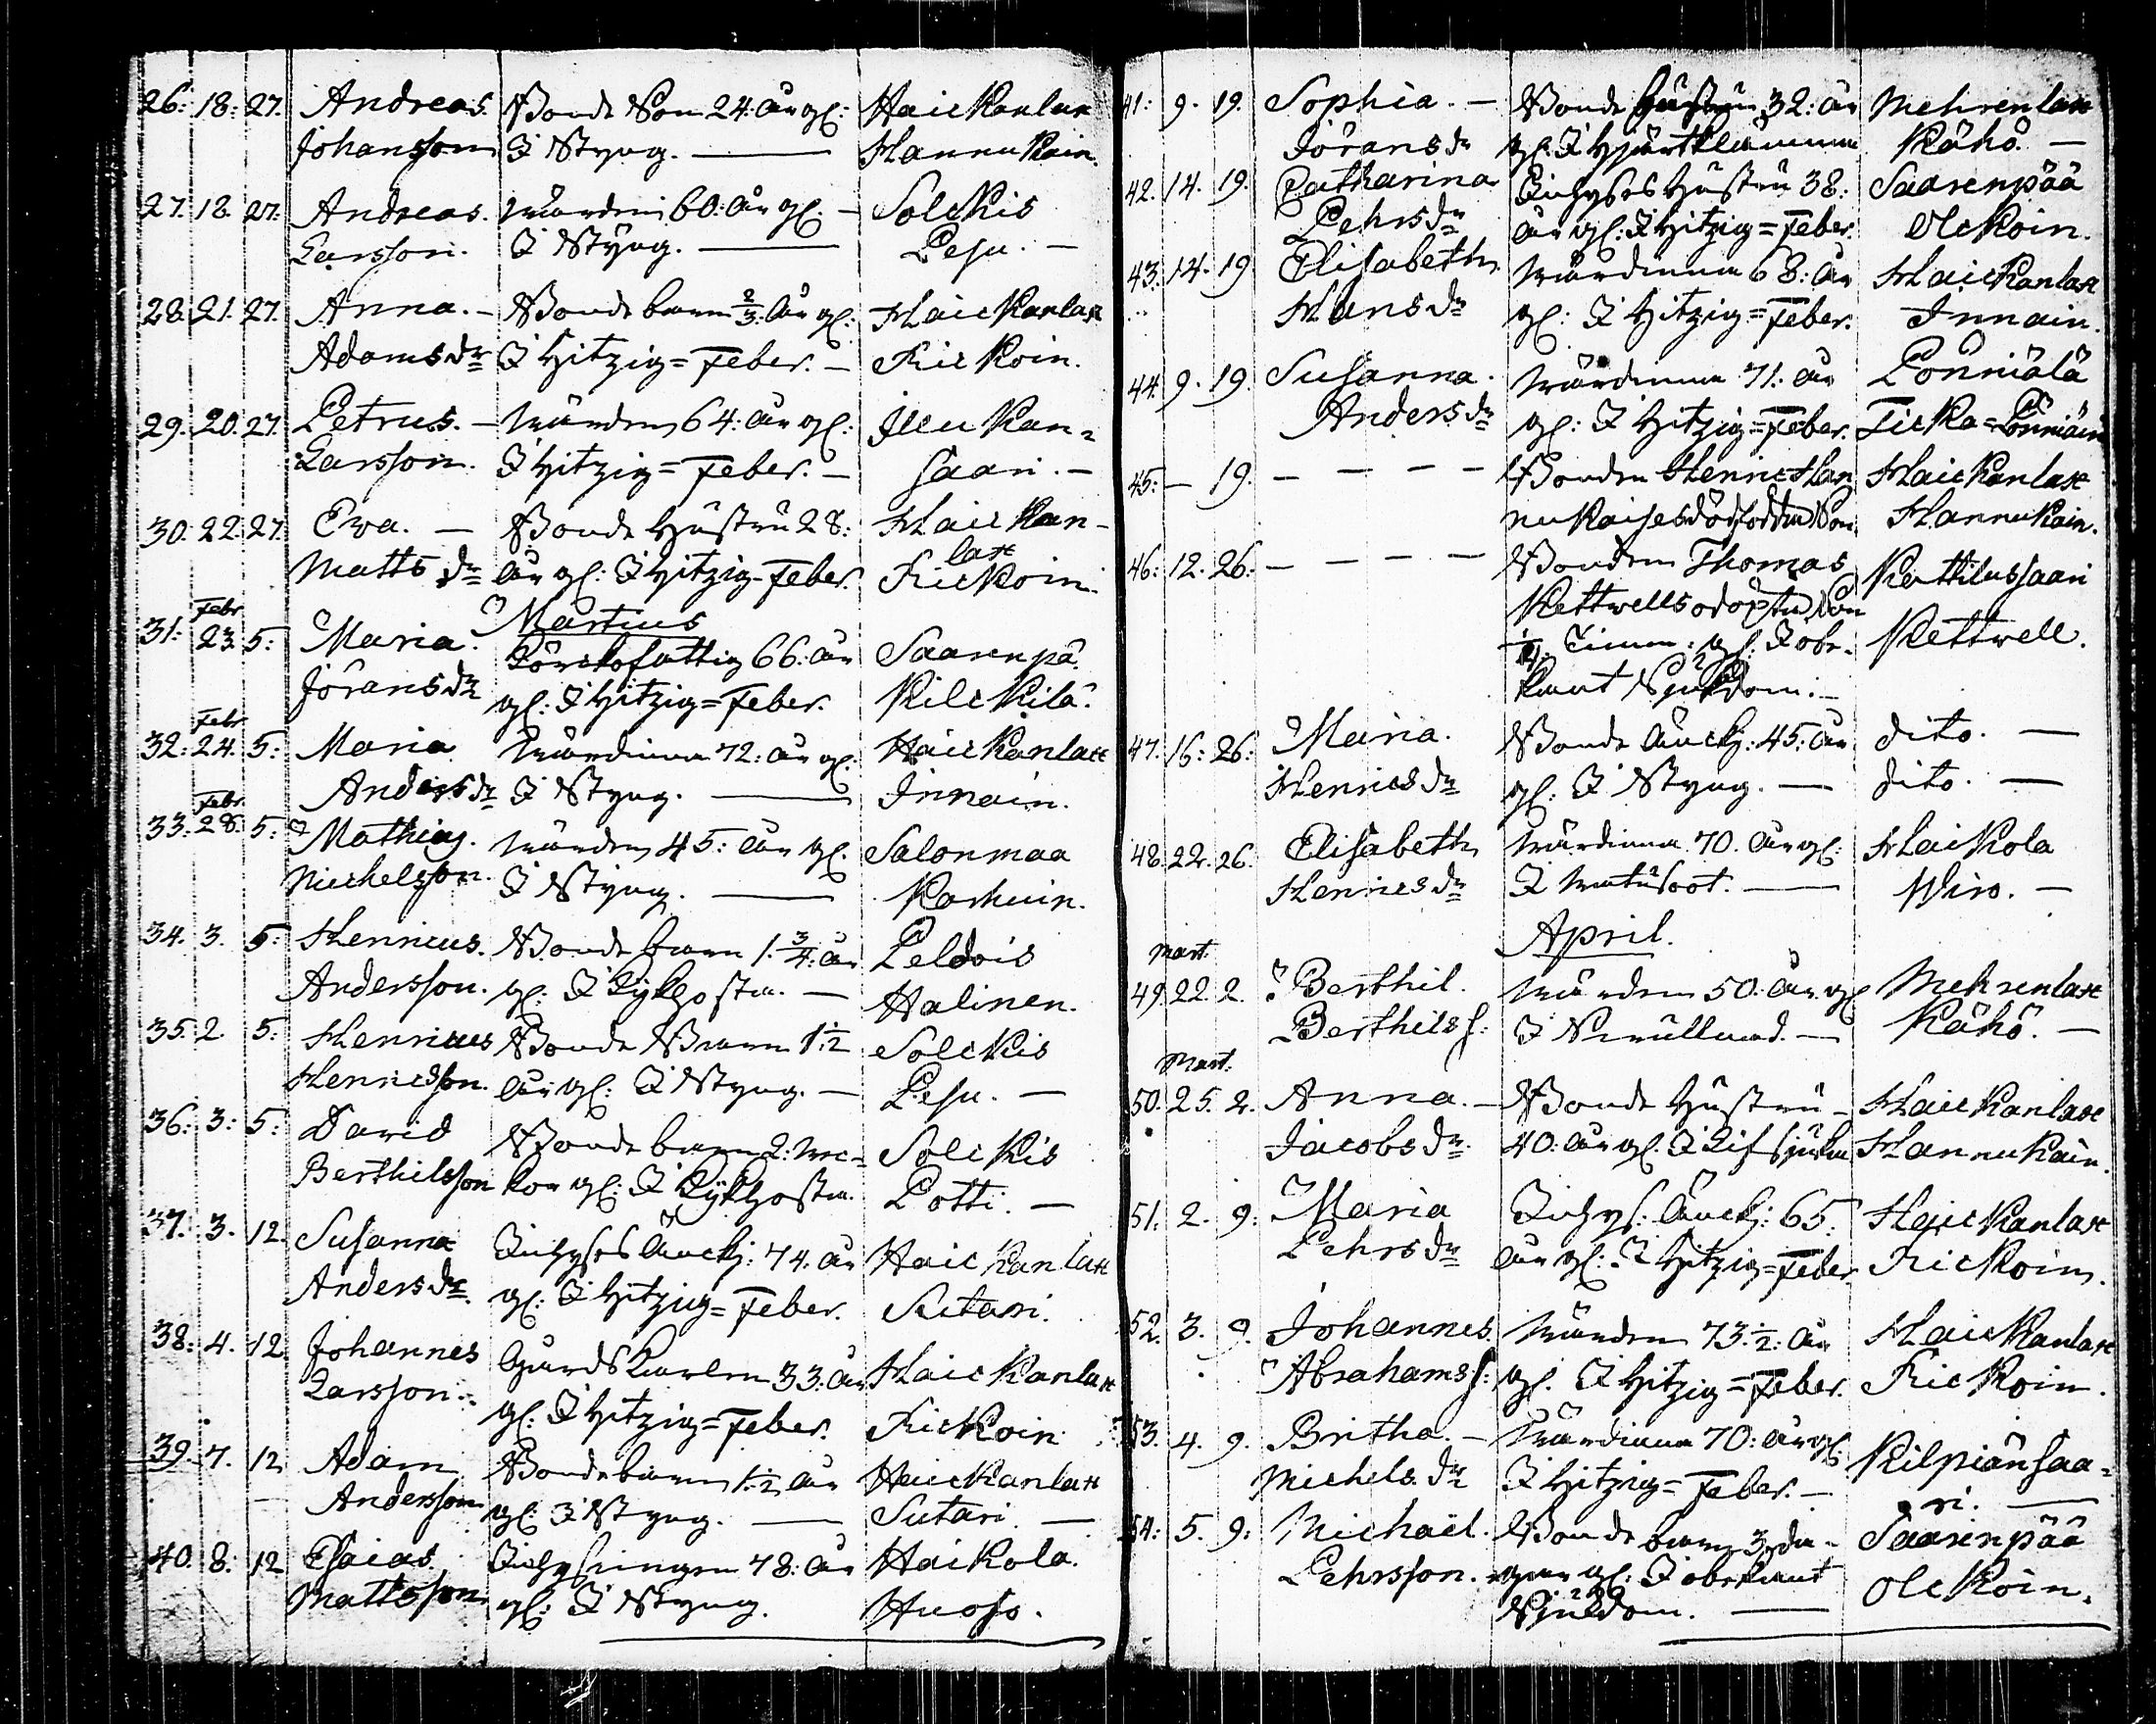 26: 18: 27. Andreas. Bonde Son 24: år gl: Haickanlax
Johansson I Styng. — Hannukain.
27. 18. 27. Andreas. Wärden 60: år gl. — Solckis
Larsson. I Styng. — Pesu. —
28. 21. 27. Anna. — Bonde barn 2/3: år gl: Haickanlax
Adams dr I Hitzig=Feber. — Kickoin.
29. 20. 27. Petrus. — Wärden 64: år gl:
Larsson. I Hitzig=Feber. — saari. —
30. 22. 27. Ewa. — Bonde Hustru 28: Haickan-
lax
Matts dr år gl: I Hitzig-Feber. Kickoin.
Martius
Febr.
31: 23. 5: Maria. 66: år Saarenpä.
Jörans dr gl: I Hitzig=Feber. Kilckilä.
Febr.
32: 24. 5: Maria Wärdinna 72: år gl: Haickanlax
Anders dr I Styng. — Innain.
Febr.
33: 28. 5: Mathias. Wärden 45: år gl. Salonmaa
Michelsson. I Styng. — Karhuin.
34. 3. 5: Henricus. Bonde barn 1. 3/4: år Peldois
Andersson. gl: I Kykhosta. — Halinen.
35: 2. 5: Henricus Bonde Barn 1 1/2 Solckis
Henricsson. år gl: I Styng. — Pesu. —
36: 3: 5: David Bonde barn 2: we- Solckis
Berthilsson kor gl: I Kykhosta. Potti. —
37: 3. 12. Susanna Inhyses Änckj: 74. år Haickanlax
Anders dr. gl: I Hitzig=Feber. Sutari.
38: 4. 12. Johannes Gårds Karlen 33: år Haickanlax
Larsson. gl: I Hitzig=Feber. Kickoin
39. 7. 12. Adam Bonde barn 1 1/2 år Haickanlax
Andersson gl: I Styng. — Sutari. —
40. 8. 12 Esaias. Inhysingen 78: år Haikola.
Mattsson gl: I Styng. Huoso.
41: 9. 19. Sophia. — Bonde Hustru 32: år Mehrenlax
Jörans dr gl. I Hjärtklämma Kähö. —
42. 14. 19. Catharina Inhyses Hustru 38: Saarenpää
Pehrs dr år gl: I Hitzig=Feber. Olckoin.
43. 14. 19 Elisabeth Wärdinna 68: år Haickanlax
Hans dr gl: I Hitzig=Feber. Innain.
44. 9. 19. Susanna. Wärdinna 71: år Pönniälä
Anders dr gl: I Hitzig=Feber. Ticka=Pönniäin
45: — 19. — — — — Bonden Henric Han Haickanlax
nukaises dödfödde Son. Hannukain.
46: 12. 26: — — — — Bonden Thomas Kattilussaari
Kettwells odöpte Son
1/4. Timme: gl: I obe- Kettwell.
kant Sjukdom: —
47. 16: 26: Maria. Bonde Änckj: 45: år dito. —
Henrics dr gl: I Styng. — dito. —
48. 22. 26. Elisabeth Wärdinna 70. år gl: Haikola
Henrics dr I Watusoot. — Wiro. —
April.
Mart.
49. 22. 2. Berthil. Wärden 50: år gl Mehrenlax
Berthils s: I Swullnad. — Kähö. —
Mart.
50. 25. 2. Anna. — Bonde Hustru — Haickanlax
Jacobs dr. 40: år gl: I Lifsjuka Hannukain.
51. 2. 9: Maria Inhys: Änckj: 65. Haickanlax
Pehrs dr år gl: I Hitzig=Feber Kickoin.
52. 3. 9. Johannes. Wärden 73 1/2: år Haickanlax
Abrahams s: gl. I Hitzig=Feber. Kickoin.
53. 4. 9. Britha. — Wärdinna 70: år gl: Kilpiänsaa=
Michels dr I Hitzig=Feber. — ri. —
54: 5. 9: Michaël. Bonde barn 3: da- Saarenpää
Pehrsson. gar gl: I obekant Olckoin.
Sjukdom. —